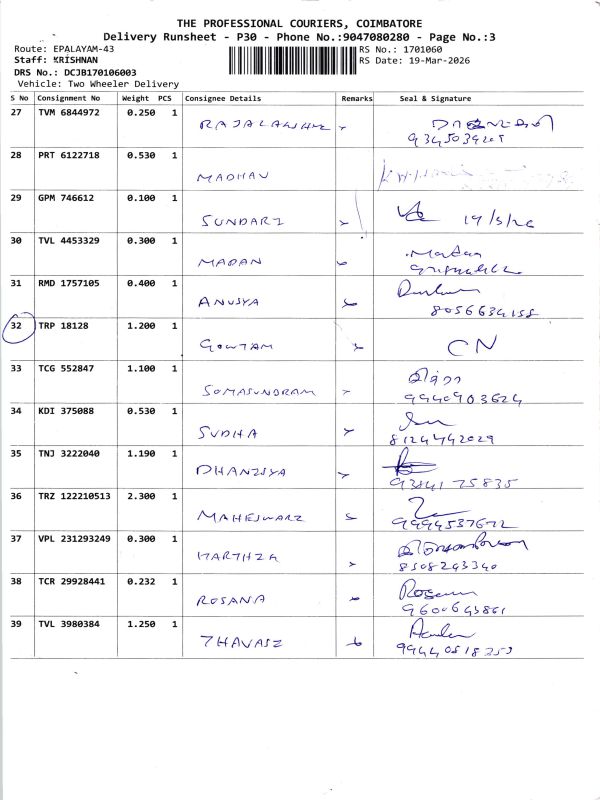 THE PROFESSIONAL COURIERS, COIMBATORE
Delivery Runsheet - P30 - Phone No.:9047080280 - Page No.:3
Route: EPALAYAM-43 RS No.: 1701060
Staff: KRISHNAN RS Date: 19-Mar-2026
DRS No.: DCJB170106003
Vehicle: Two Wheeler Delivery
S No Consignment No Weight PCS Consignee Details Remarks Seal & Signature
27 TVM 6844972 0.250 1
RAJALAKSHMI
28 PRT 6122718 0.530 1
MADHAV
29 GPM 746612 0.100 1
SUNDARI 19/3/26
30 TVL 4453329 0.300 1
MADAN Madan
31 RMD 1757105 0.400 1
ANUSYA 8056634158
32 TRP 18128 1.200 1
GOWTAM CN
33 TCG 552847 1.100 1
SOMASUNDRAM 9940903624
34 KDI 375088 0.530 1
SUDHA 8124742029
35 TNJ 3222040 1.190 1
DHANZSYA 9384175835
36 TRZ 122210513 2.300 1
MAHESWARI 9994537672
37 VPL 231293249 0.300 1
HARTHZA 8508243340
38 TCR 29928441 0.232 1
ROSANA 9600643861
39 TVL 3980384 1.250 1
THAVASI